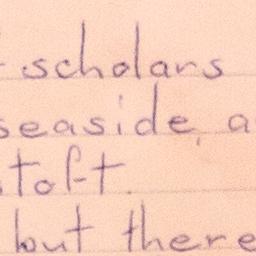 scholars
seaside, a
toft.
but there